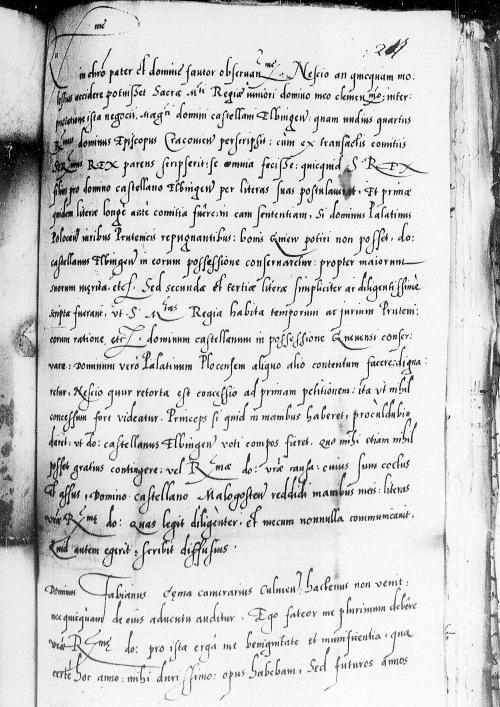 me
in chro pater et domine fautor obseruan me. Nescio an quicquam mo:
lestius accidere potuisset Sacrae Mti Regiae iuniori domino meo clemen mo, inter:
ista negocii, Magci domini castellani Elbingen: quam nudius quartus
Rmus dominus Episcopus Cracouien perscripsit: cum ex transactis comitiis
REX parens scripserit: se omnia fecisse: quicquid S. REX
filius pro domino castellano Elbingen per literas suas postulauerit. Et primae
quidem literae longe ante comitia fuere: in eam sententiam, Si dominus Palatinus
Plocen iuribus Prutenicis repugnantibus: bonis Gniew potiri non posset, do:
castellanus Elbingen in eorum possessione conseruaretur: propter maiorum
suorum merita, etc. Sed secundae et tertiae literae simpliciter ac diligentissime
scriptae fuerant, vt S. Mtas Regia habita temporum ac iurium Prutem:
eorum ratione, etc. dominum castellanum in possessione Gneuensi conser:
uare: Dominum vero Palatinum Plocensem aliquo alio contentum facere: digna:
retur. Nescio quur retorta est concessio ad primam petitionem: ita vt nihil
concessum fore videatur. Princeps si quid in manibus haberet, procul dubio
daret: vt do: castellanus Elbingen voti compos fieret. Quo mihi etiam nihil
posset gratius contingere: vel Rmae do: vrae causa: cuius sum coctus
Et assus, Domino castellano Malogosten reddidi manibus meis: literas
vrae Rme do: Quas legit diligenter, et mecum nonnulla communicauit.
Quid autem egerit: scribit diffusius.
Dominus Fabianus Cema camerarius Culmen: hactenus non venit:
nec quicquam de eius aduentu auditur. Ego fateor me plurimum debere
vrae Rme do: pro ista erga me benignitate et munificentia, qua
certe hoc anno: mihi durissimo: opus habebam, Sed futuros annos